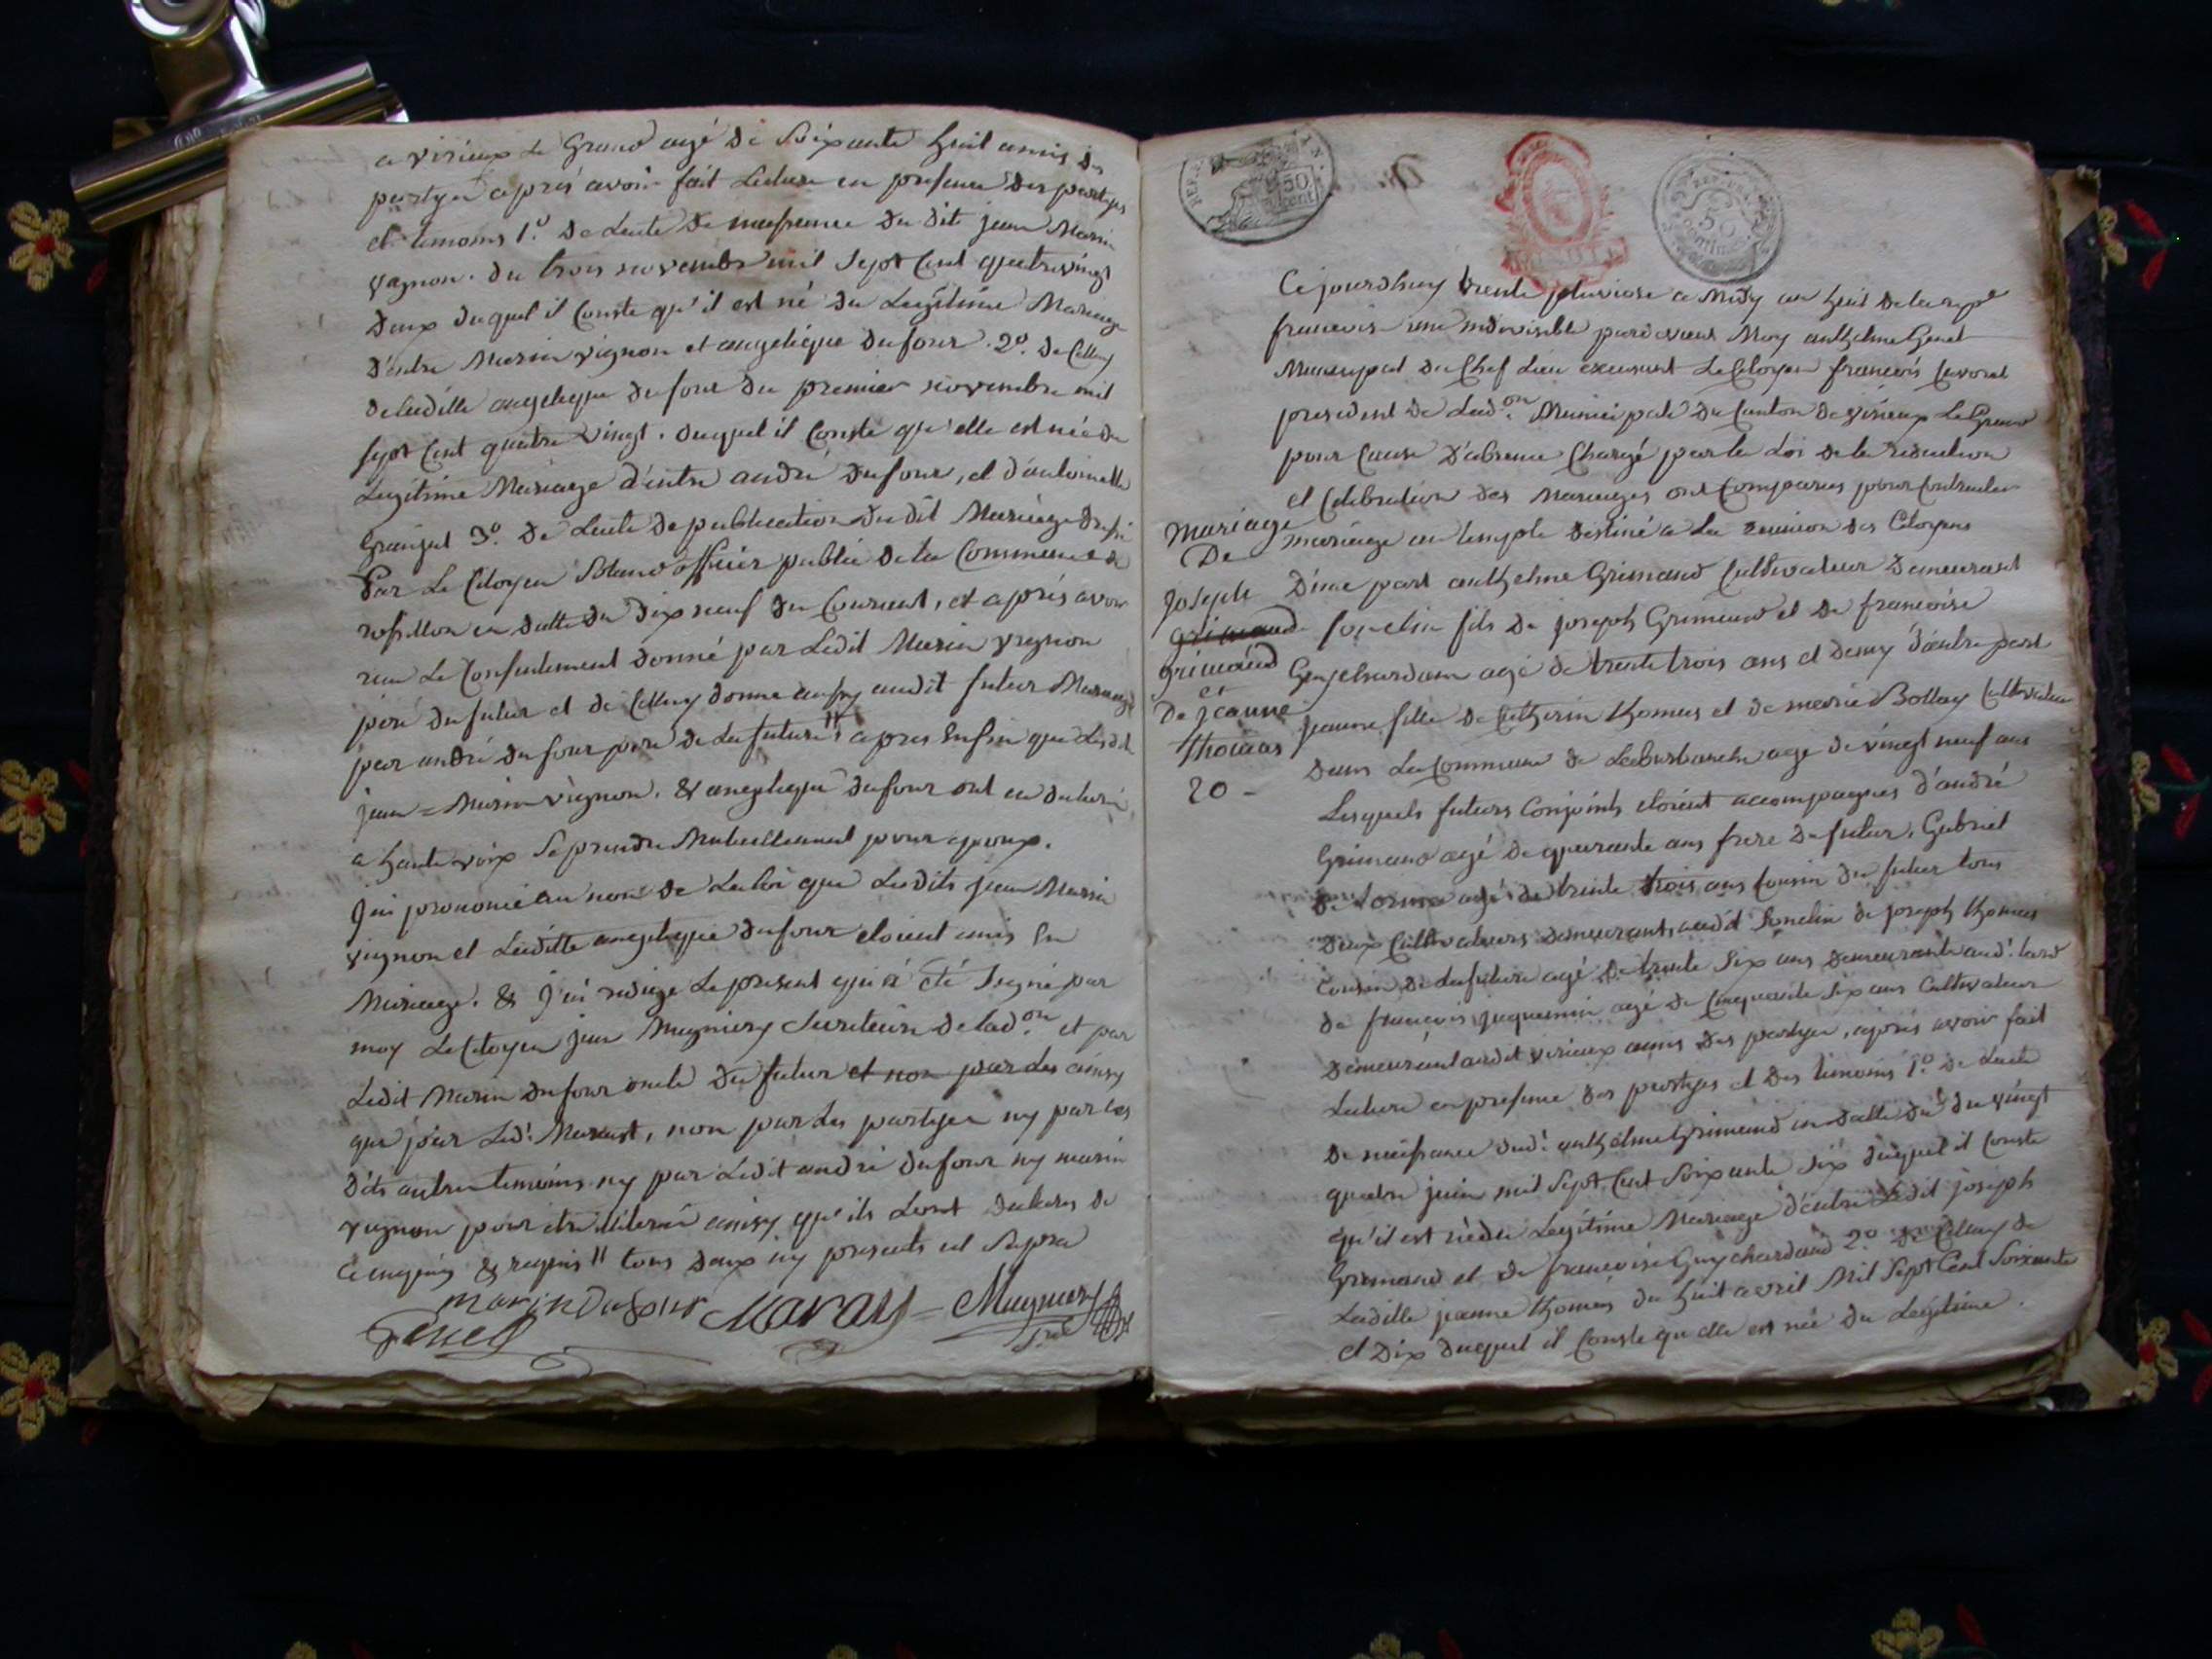 a virieux Le Grand agé de Soixante huit amis des
partyes après avoir fait Lecture en presence des partyes
et temoins 1.° De Lacte de naissance du dit jean Marin
vignon. du trois novembre mil Sept Cent quatre vingt
Deux duquel il Conste qu'il est né du Legitime Mariage
d'entre Marin vignon et angelique dufour. 2.° de Celluy
de ladite angelique dufour du premier novembre mil
Sept Cent quatre vingt. duquel il Conste qu'elle est née du
Legitime Mariage d'entre andré dufour, et d'antoinette
3.° De Lacte de publication du dit Mariage
Par Le Citoyen officier public de la Commune de
rossillon en datte du dix neuf du Courant, et après avoir
Le Consentement donné par Ledit Marin vignon
pere du futur et de Celluy donné aussy audit futur Mariage
par andré dufour pere de La future apres Enfin que Lesdit
jean = Marin vignon. & angelique dufour ont eu
a haute voix Se prendre Mutuellement pour epoux.
J'ai prononcé au nom de La Loi que Lesdits jean Marin
vignon et Ladite angelique dufour etoient unis En
Mariage. & J'ai redigé Le present qui a été Signé par
moy Le Citoyen jean Mugniery Secretaire de lad.on et par
Ledit Marin dufour oncle du futur et non par les ainsy
que par Led.t Marast, non par les partyes ny par les
dits autres temoins ny par Ledit andré dufour ny marin
vignon pour etre ainsy qu'ils L'ont de
Ce enquis & requis // tous deux icy presents ut Supra
marin Dufour Maras Mugniery
Genet
REP. FRA. 50 cent.
50 Centimes
Ce jourdhuy trente pluviose a Midy an huit de la rep.e
francoise une indivisible pardevant Moy anthelme Genet
Municipal du Chef Lieu Le Citoyen francois
president de Lad.on Municipale du Canton de virieux Le Grand
pour Cause D'absence Chargé par la Loi de la redaction
et Celebration des Mariages ont Comparus pour Contracter
mariage au temple destiné a La reunion des Citoyens
D'une part anthelme Grimaud Cultivateur Demeurant
fils de joseph Grimaud et de francoise
agé de trente trois ans et demy d'autre part
jeanne fille de thomas et de marie Bollay
Dans La Commune de agé de vingt neuf ans
Lesquels futurs Conjoints etoient accompagnés d'andré
Grimaud agé de quarante ans frere du futur, Gabriel
agé de trente trois ans Cousin du futur tous
deux Cultivateurs demeurants audit de joseph thomas
Cousin de La future agé de trente Six ans demeurant aud.t
de francois agé de Cinquante Six ans Cultivateur
Demeurant audit virieux amis des partyes, après avoir fait
Lecture en presence des partyes et des temoins 1.° de Lacte
de naissance dud.t anthelme Grimaud en datte du vingt
quatre juin mil Sept Cent Soixante Six duquel il Conste
qu'il est né du Legitime Mariage d'entre Ledit joseph
Grimaud et de francoise Guychardand 2.° de Celluy de
Ladite jeanne thomas du huit avril Mil Sept Cent Soixante
et Dix duquel il Conste qu'elle est née du Legitime
mariage
De
Joseph
grimaud
grimaud
et
De jeanne
thomas
20 -